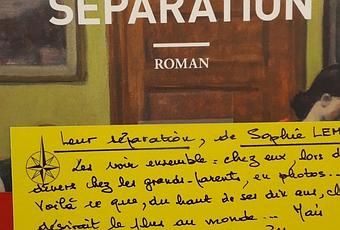 SÉPARATION
ROMAN
Leur séparation, de Sophie LEM
Les voir ensemble : chez eux, lors d
dîners chez les grands-parents, en photos...
Voilà ce que, du haut de ses dix ans, cl
désirait le plus au monde... Mais